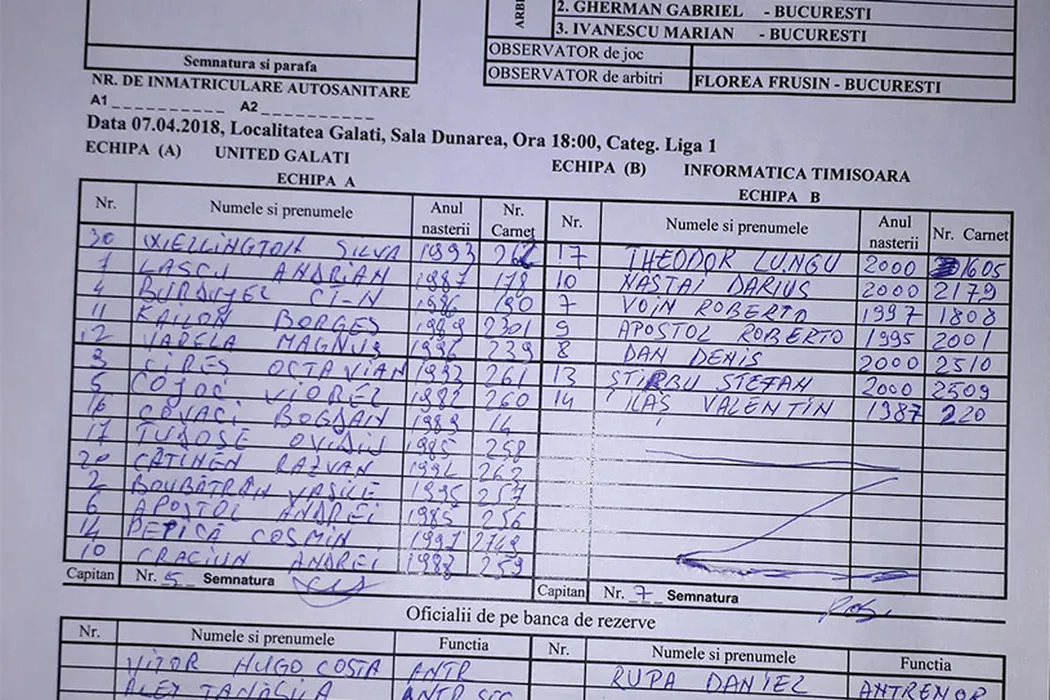 ARBI
2. GHERMAN GABRIEL - BUCURESTI
3. IVANESCU MARIAN - BUCURESTI
OBSERVATOR de joc
OBSERVATOR de arbitri FLOREA FRUSIN - BUCURESTI
Semnatura si parafa
NR. DE INMATRICULARE AUTOSANITARE
A1 __________ A2 __________
Data 07.04.2018, Localitatea Galati, Sala Dunarea, Ora 18:00, Categ. Liga 1
ECHIPA (A) UNITED GALATI ECHIPA (B) INFORMATICA TIMISOARA
ECHIPA A ECHIPA B
Nr. Numele si prenumele Anul nasterii Nr. Carnet Nr. Numele si prenumele Anul nasterii Nr. Carnet
30 WELLINGTON SILVA 1993 17 THEODOR LUNGU 2000 1605
1 LASCU ANDRIAN 1987 178 10 NASTAI DARIUS 2000 2179
4 CT-N 1986 190 7 VOIN ROBERTO 1997 1808
11 KAILON BORGES 1989 2301 9 APOSTOL ROBERTO 1995 2001
12 VARELA MAGNUS 1996 239 8 DAN DENIS 2000 2510
3 CIRES OCTAVIAN 1993 261 13 STIRBU STEFAN 2000 2509
5 COJOC VIOREL 1982 260 14 ILAȘ VALENTIN 1987 220
16 COVACI BOGDAN 1989 14
17 TUDOSE OVIDIU 1985 258
20 CĂTINEN RAZVAN 262
2 BOUBĂTRÂN VASILE 1995 257
6 APOSTOL ANDREI 1985 256
14 PEPICĂ COSMIN 1997 2149
10 CRACIUN ANDREI 1988 259
Capitan Nr. 5 Semnatura Capitan Nr. 7 Semnatura
Oficialii de pe banca de rezerve
Nr. Numele si prenumele Functia Nr. Numele si prenumele Functia
VITOR HUGO COSTA ANTR RUPA DANIEL ANTRENOR
ALEX TANAGILA ANTR SEC